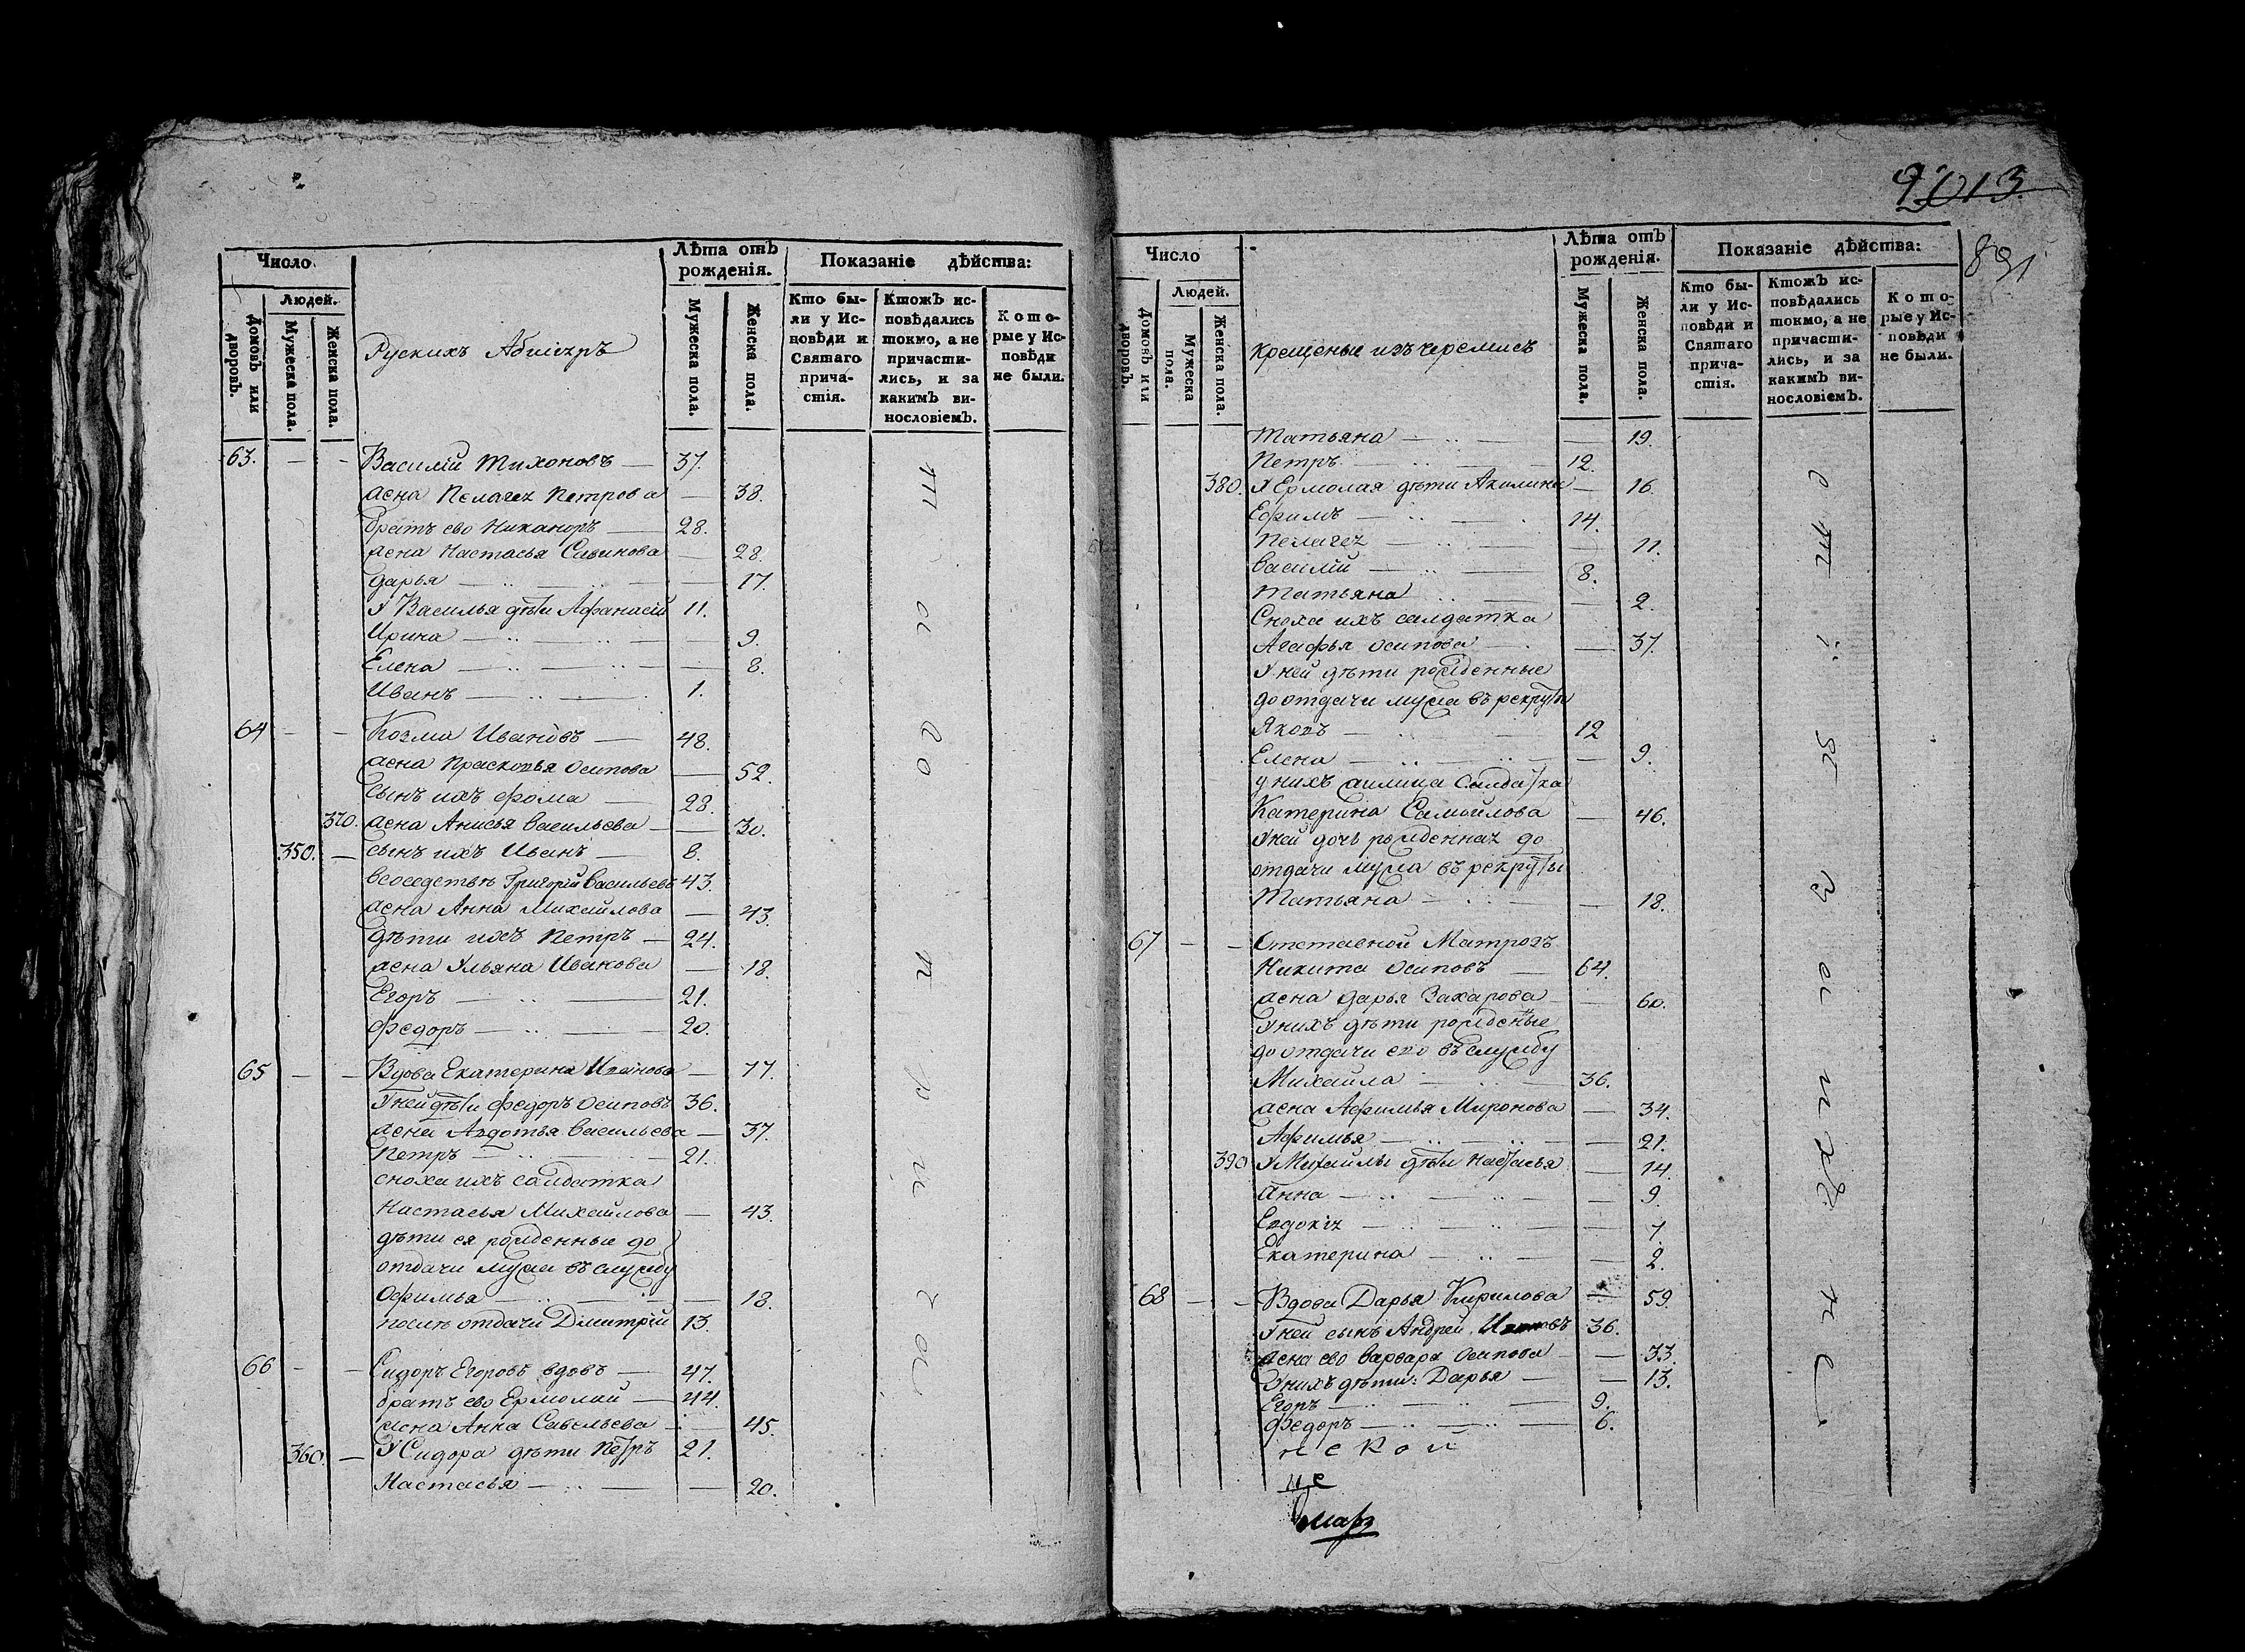 Число
Людей.
Домовъ или дворовъ.
Мужеска пола.
Женска пола.
Рускихъ
Лѣта отъ рожденія.
Мужеска пола.
Женска пола.
Показаніе дѣйства:
Кто были у Исповѣди и Святаго причастія.
Ктожъ исповѣдались токмо, а не причастились, и за какимъ винословіемъ.
Которые у Исповѣди не были.
63. — - Василій Тихоновъ — 37.
жена Пелагея Петрова — 38.
братъ ево Никаноръ — 28.
жена Настасья Савинова — 28.
Дарья — .. — .. — 17.
У Василья дѣти Афанасій 11.
Ирина — .. — .. — 9.
Елена — .. — .. — 8.
Иванъ — .. — . 1.
64 - - Козма Ивановъ — 48.
жена Прасковья Осипова — 52.
сынъ ихъ Фома — 28.
370. жена Анисья Васильева — 30.
350. — сынъ ихъ Иванъ — 8.
Григорій Васильевъ 43.
жена Анна Михайлова — 43.
дѣти ихъ Петръ — 24.
жена Ульяна Иванова — 18.
Егоръ — .. — 21.
Федоръ — .. — 20.
65 — — Вдова Екатерина Иванова — 77.
У ней дѣти Федоръ Осиповъ 36.
жена Авдотья Васильева — 37.
Петръ — .. — 21.
сноха ихъ салдатка
Настасья Михайлова — 43.
дѣти ея рожденные до
отдачи мужа въ службу
Офимья — .. — 18.
послѣ отдачи Димитрій 13.
66 - — Сидоръ Егоровъ вдовъ — 47.
братъ ево Ермолай — 44.
жена Анна Савельева — 45.
360. — У Сидора дѣти Петръ 21.
Настасья — .. — 20.
2013.
891
Число
Людей.
Домовъ или дворовъ.
Мужеска пола.
Женска пола.
Крещеные изъ черемисъ
Лѣта отъ рожденія.
Мужеска пола.
Женска пола.
Показаніе дѣйства:
Кто были у Исповѣди и Святаго причастія.
Ктожъ исповѣдались токмо, а не причастились, и за какимъ винословіемъ.
Которые у Исповѣди не были.
Татьяна — .. — 19.
Петръ — .. — 12.
380. У Ермолая дѣти Акилина — 16.
Ефимъ — .. — 14.
Пелагея — .. — 11.
Василій — .. — 8.
Татьяна .. — 2.
Сноха ихъ салдатка
Агафья Осипова — 37.
У ней дѣти рожденные
до отдачи мужа въ рекруты
Яковъ — . 12
Елена — .. — 9.
у нихъ жилица Салдатка
Катерина Самойлова — 46.
У ней дочь рожденная до
отдачи мужа въ рекруты
Татьяна — .. — 18.
67 - - Отставной Матрозъ
Никита Осиповъ — 64.
жена Дарья Захарова — 60.
У нихъ дѣти рожденные
до отдачи его въ службу
Михайла — .. — 36.
жена Афимья Миронова — 34.
Афимья — .. — .. — 21.
390 У Михайлы дѣти Настасья — 14.
Анна — .. — .. — 9.
Евдокія — .. — .. — 7.
Екатерина — .. — 2.
68 — - Вдова Дарья Кирилова — 59.
У ней сынъ Андрей 36.
жена ево Варвара Осипова — 33.
У нихъ дѣти: Дарья — 13.
Егоръ — .. — 9.
Федоръ — .. — 6.